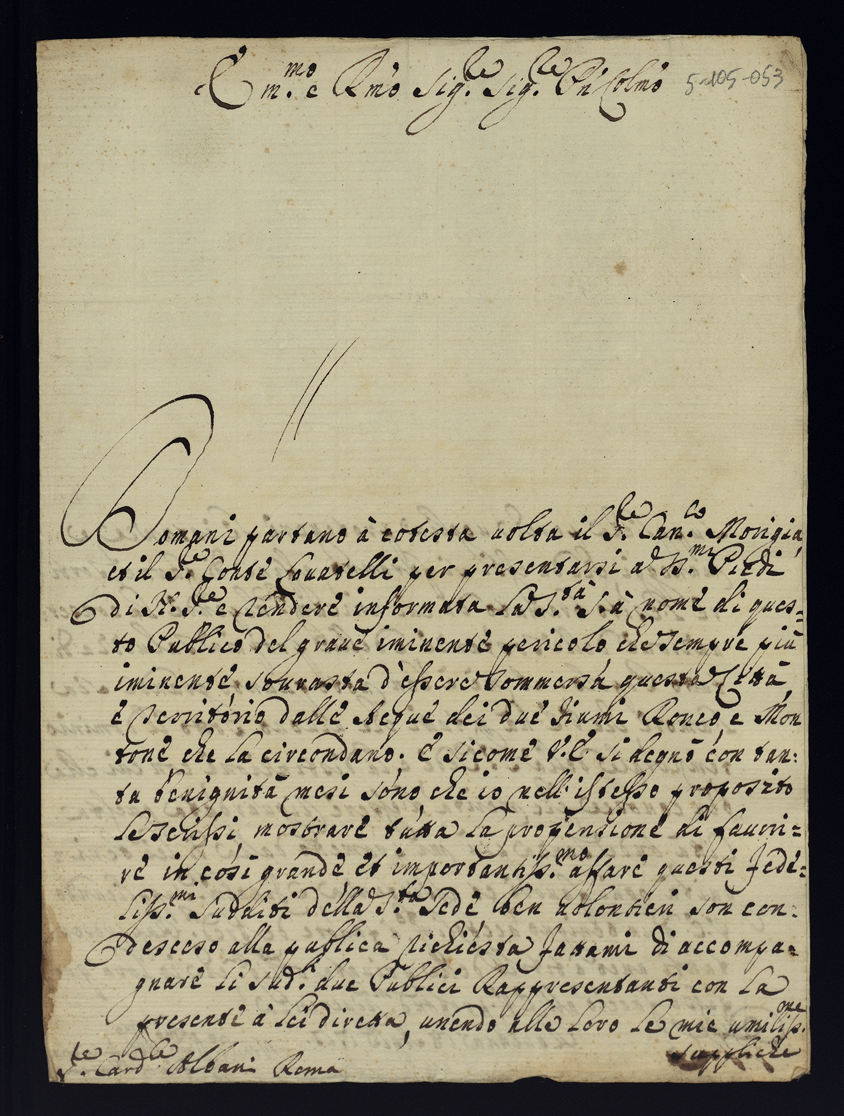 E.mo e Rmo Sig.re Sig.re Pn Colmo 5-105-053
Domani partano à cotesta uolta il S.re Can.co Morigia,
et il S.re Conte Louatelli per presentarsi a SS.mi Piedi
di N. S.re e rendere informata la S.tà S. à nome di ques=
to Publico del graue iminente pericolo che sempre più
iminente sourasta d'essere sommersa questa Città,
e Territorio dalle Acque dei due fiumi Ronco e Mon
tone che la circondano. E sicome V. E. si degnò con tan:
ta benignità mesi sono che io nell'istesso proposito
le scrissi, mostrare tutta la propensione di fauori=
re in cosi grande et importantiss.mo affare questi fede=
liss.mi sudditi della S.ta Sede ben uolontieri son con:
desceso alla publica richiesta fattami di accompa=
gnare li sud.i due Publici Rappresentanti con la
presente à lei diretta, unendo alle loro le mie umiliss.me
suppliche
S.re Card.le Albani Roma